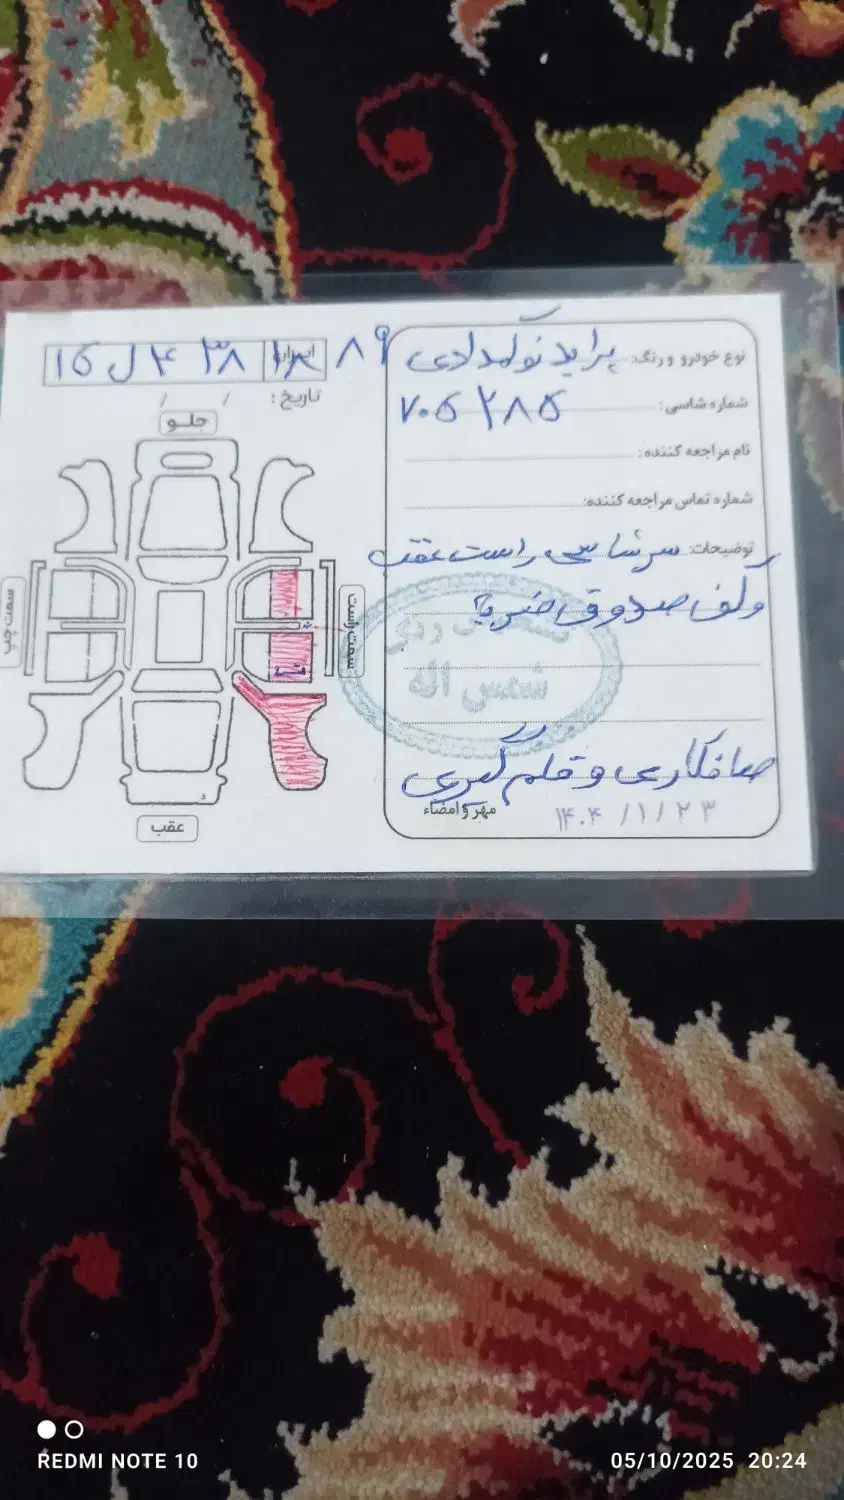 نوع خودرو و رنگ: پراید نوکمدادی ۸۹
شماره شاسی: ۷۰۵۲۸۵
نام مراجعه کننده:
شماره تماس مراجعه کننده:
توضیحات: سرشاسی راست عقب
و کف صندوق ضربه
شمس اله
صافکاری و قلم گیری
مهر و امضاء
۱۴۰۴/۱/۲۳
ایران ۱۸
۱۵ ل ۴۳۸
تاریخ: / /
جلو
سمت راست
سمت چپ
عقب
REDMI NOTE 10
05/10/2025 20:24